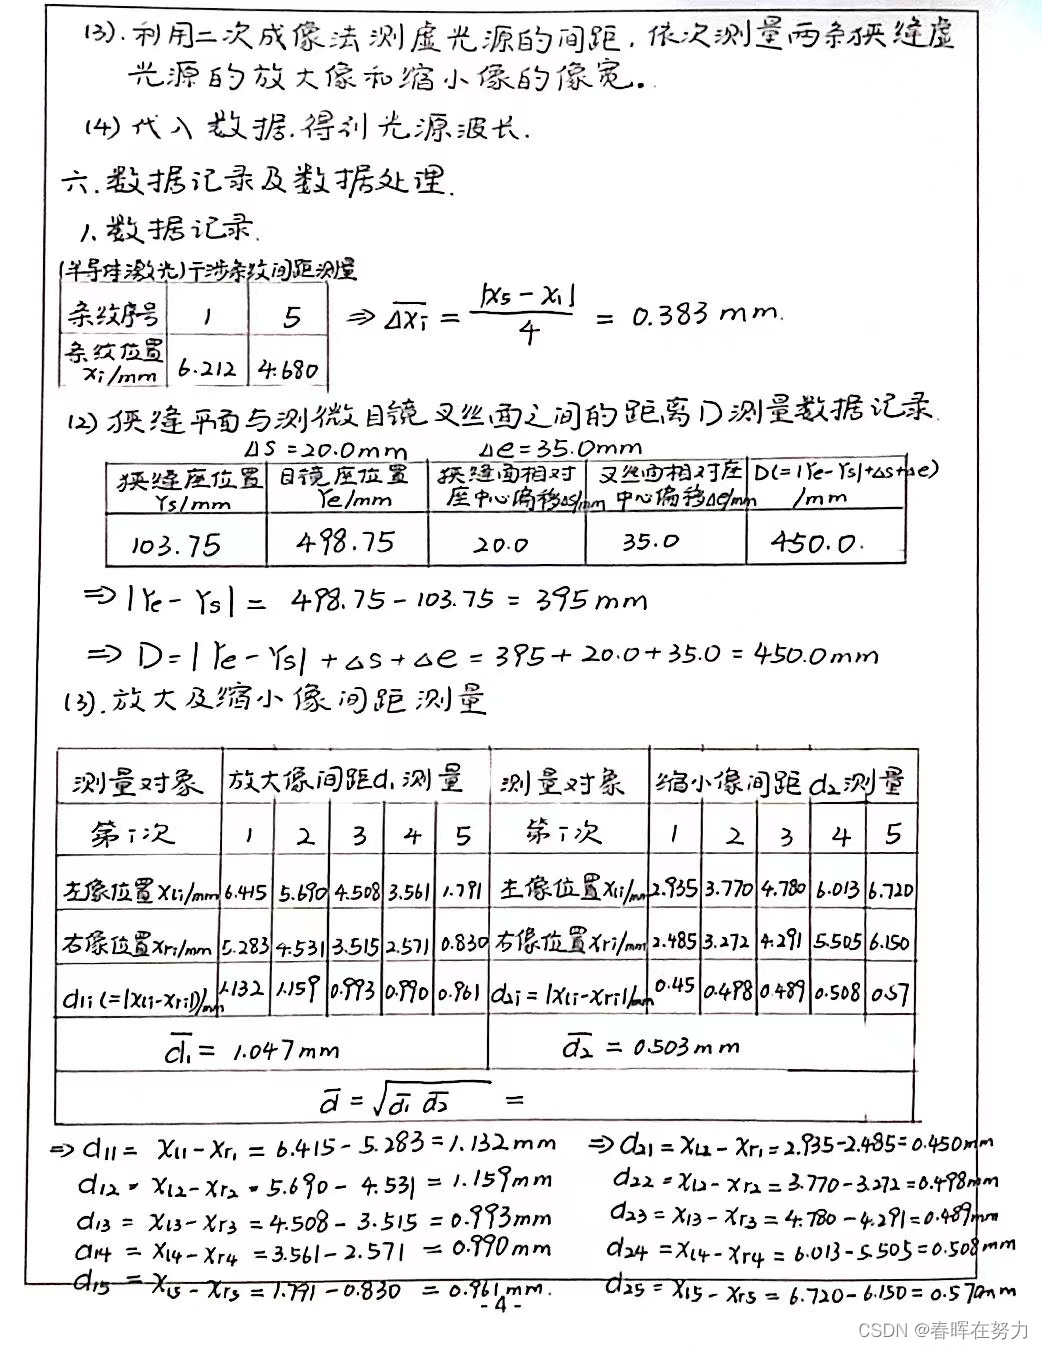 (3).利用二次成像法测虚光源的间距,依次测量两条狭缝虚
光源的放大像和缩小像的像宽。
(4)代入数据.得到光源波长.
六.数据记录及数据处理.
1.数据记录.
(半导体激光)干涉条纹间距测量
条纹序号 1 5 ⇒ Δxi = |x5-x1|/4 = 0.383mm.
条纹位置xi/mm 6.212 4.680
(2)狭缝平面与测微目镜叉丝面之间的距离D测量数据记录.
Δs=20.0mm Δe=35.0mm
狭缝座位置Ys/mm 目镜座位置Ye/mm 狭缝面相对座中心偏移Δs/mm 叉丝面相对座中心偏移Δe/mm D(=|Ye-Ys|+Δs+Δe)/mm
103.75 498.75 20.0 35.0 450.0.
⇒|Ye-Ys|= 498.75-103.75=395mm
⇒ D=|Ye-Ys|+Δs+Δe=395+20.0+35.0=450.0mm
(3).放大及缩小像间距测量
测量对象 放大像间距d1测量 测量对象 缩小像间距d2测量
第i次 1 2 3 4 5 第i次 1 2 3 4 5
左像位置xli/mm 6.415 5.690 4.508 3.561 1.791 左像位置xli/mm 2.935 3.770 4.780 6.013 6.720
右像位置xri/mm 5.283 4.531 3.515 2.571 0.830 右像位置xri/mm 2.485 3.272 4.291 5.505 6.150
d1i(=|xli-xri|)/mm 1.132 1.159 0.993 0.990 0.961 d2i=|xli-xri|/mm 0.45 0.498 0.489 0.508 0.57
d1=1.047mm d2=0.503mm
d=√d1 d2 =
⇒d11= xl1-xr1=6.415-5.283=1.132mm ⇒d21=xl2-xr1=2.935-2.485=0.450mm
d12=xl2-xr2=5.690-4.531=1.159mm d22=xl2-xr2=3.770-3.272=0.498mm
d13=xl3-xr3=4.508-3.515=0.993mm d23=xl3-xr3=4.780-4.291=0.489mm
d14=xl4-xr4=3.561-2.571=0.990mm d24=xl4-xr4=6.013-5.505=0.508mm
d15=xl5-xr5=1.791-0.830=0.961mm. d25=xl5-xr5=6.720-6.150=0.570mm
-4-
CSDN @春晖在努力